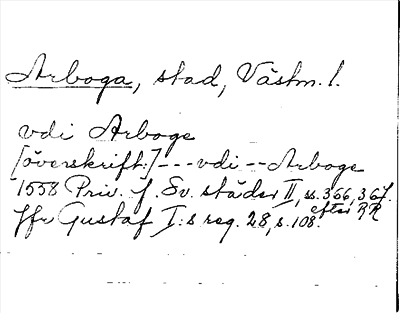 Arboga, stad, Västm. l.
vdi Arboge
[överskrift:] --- vdi -- Arboge
1558 Priv. f. Sv. städer II, ss. 366, 367.
efter RR
Jfr Gustaf I:s reg. 28, s. 108.